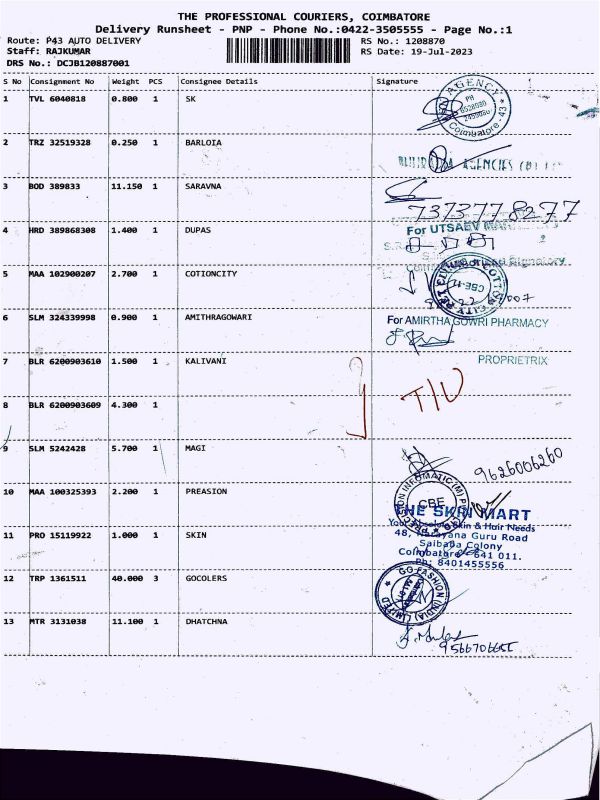 THE PROFESSIONAL COURIERS, COIMBATORE
Delivery Runsheet - PNP - Phone No.:0422-3505555 - Page No.:1
Route: P43 AUTO DELIVERY
RS No.: 1208870
Staff: RAJKUMAR
RS Date: 19-Jul-2023
DRS No.: DCJB120887001
S No Consignment No Weight PCS Consignee Details Signature
1 TVL 6040818 0.800 1 SK
AGENCY
PH
Coimbatore - 43
2 TRZ 32519328 0.250 1 BARLOIA
AGENCIES
3 BOD 389833 11.150 1 SARAVNA
7373778277
4 HRD 389868308 1.400 1 DUPAS
For UTSAEV
5 MAA 102900207 2.700 1 COTIONCITY
6 SLM 324339998 0.900 1 AMITHRAGOWARI
For AMIRTHA GOWRI PHARMACY
PROPRIETRIX
7 BLR 6200903610 1.500 1 KALIVANI
T/U
8 BLR 6200903609 4.300 1
9 SLM 5242428 5.700 1 MAGI
9626006260
10 MAA 100325393 2.200 1 PREASION
PRECISION INFOMATIC (M) P
CBE
THE SKIN MART
Your Absolute Skin & Hair Needs
11 PRO 15119922 1.000 1 SKIN
48, Narayana Guru Road
Saibaba Colony
Coimbatore - 641 011.
Ph: 8401455556
12 TRP 1361511 40.000 3 GOCOLERS
GO FASHION (INDIA) LIMITED
13 MTR 3131038 11.100 1 DHATCHNA